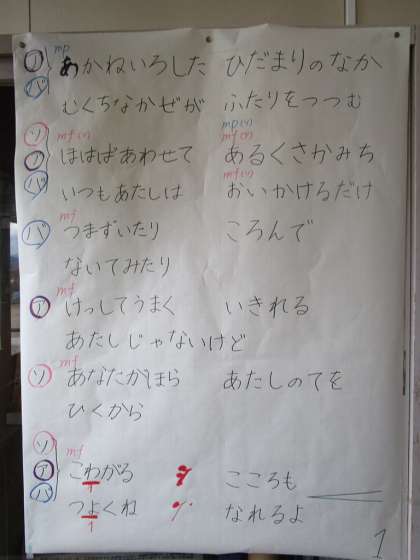 ア バ mp あかねいろした ひだまりのなか
むくちなかぜが ふたりをつつむ
ソ ア バ mf(1) ほはばあわせて mp(1) mf(1) あるくさかみち
いつもあたしは mf(1) おいかけるだけ
バ mf つまずいたり ころんで
ないてみたり
ア mf けっしてうまく いきれる
あたしじゃないけど
ソ mf あなたがほら あたしのてを
ひくから
ソ ア バ mf こわがる こころも
つよくね なれるよ
1